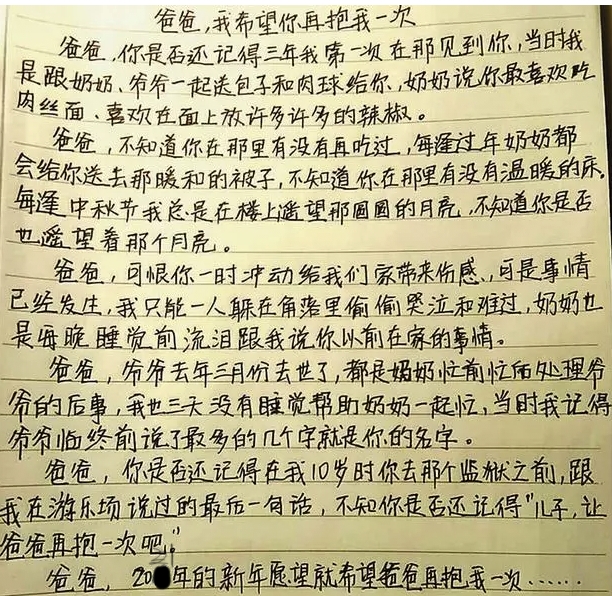 爸爸,我希望你再抱我一次
爸爸,你是否还记得三年我第一次在那见到你,当时我
是跟奶奶、爷爷一起送包子和肉球给你,奶奶说你最喜欢吃
肉丝面、喜欢在面上放许多许多的辣椒。
爸爸,不知道你在那里有没有再吃过,每逢过年奶奶都
会给你送去那暖和的被子,不知道你在那里有没有温暖的床,
每逢中秋节我总是在楼上遥望那圆圆的月亮,不知道你是否
也遥望着那个月亮。
爸爸,可恨你一时冲动给我们家带来伤感,可是事情
已经发生,我只能一人躲在角落里偷偷哭泣和难过,奶奶也
是每晚睡觉前流泪跟我说你以前在家的事情。
爸爸,爷爷去年三月份去世了,都是奶奶忙前忙后处理爷
爷的后事,我也三天没有睡觉帮助奶奶一起忙,当时我记得
爷爷临终前说了最多的几个字就是你的名字。
爸爸,你是否还记得在我10岁时你去那个监狱之前,跟
我在游乐场说过的最后一句话,不知你是否还记得"儿子,让
爸爸再抱一次吧"
爸爸,20年的新年愿望就希望爸爸再抱我一次……